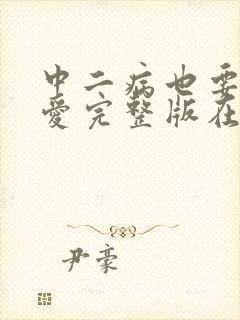 中二病也要
爱完整版在
尹豪